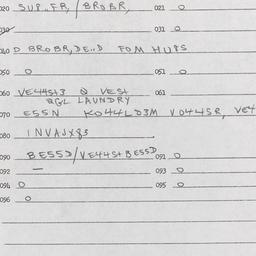 020 SUP..FR, / BROBR, 021 0
030 031 0
040 D BROBR, DE..D FOM HUPS
050 0 051 0
060 VE44St3 Q VESt 061
QGL LAUNDRY
070 ESSN KO44LD3M VO44SR, VE4
080 INVAJX83
090 BESSD/VE44StBESSD 091 0
092 — 093 0
094 0 095 0
096 0